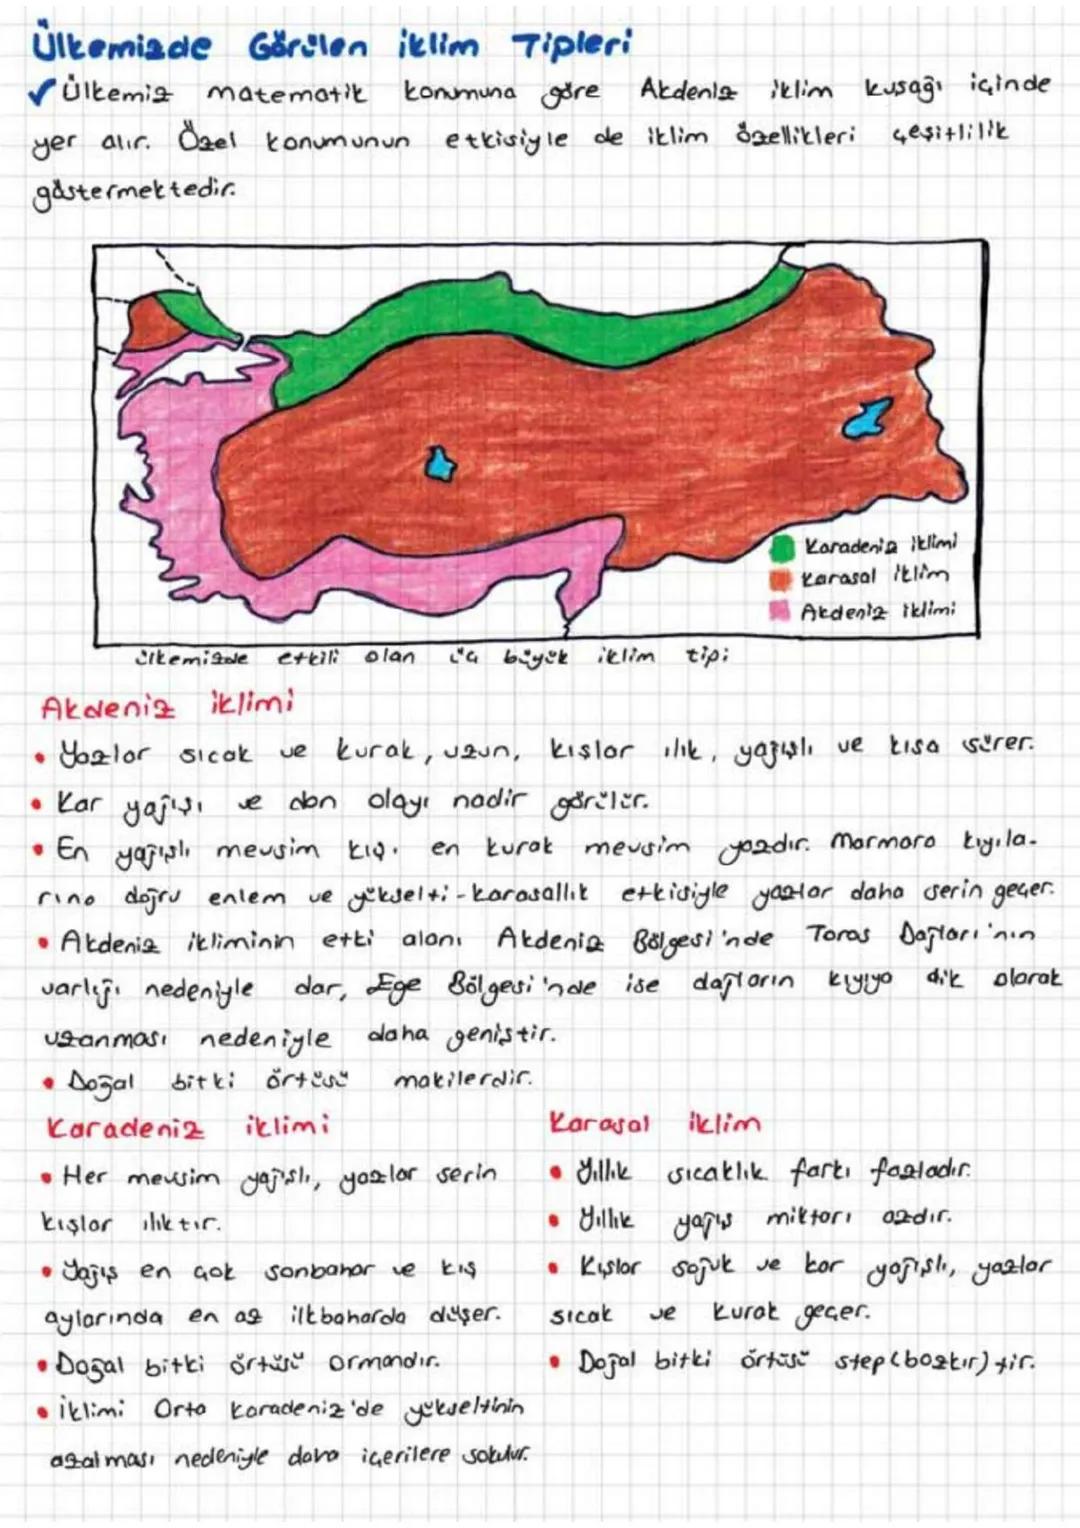 Ülkemizde Görülen İklim Tipleri
✓ Ülkemiz matematik konumuna göre Akdeniz iklim kuşağı içinde
yer alır. Özel konumunun etkisiyle de iklim özellikleri çeşitlilik
göstermektedir.
Karadeniz iklimi
Karasal iklim
Akdeniz iklimi
Ülkemizde etkili olan üç büyük iklim tipi
Akdeniz iklimi
• Yazlar sıcak ve kurak, uzun, kışlar ılık, yağışlı ve kısa sürer.
• Kar yağışı ve don olayı nadir görülür.
• En yağışlı mevsim kış, en kurak mevsim yazdır. Marmara kıyıla-
rına doğru enlem ve yükselti-karasallık etkisiyle yazlar daha serin geçer.
• Akdeniz ikliminin etki alanı Akdeniz Bölgesi'nde Toros Dağları'nın
varlığı nedeniyle dar, Ege Bölgesi'nde ise dağların kıyıya dik olarak
uzanması nedeniyle daha geniştir.
• Doğal bitki örtüsü makilerdir.
Karadeniz iklimi
• Her mevsim yağışlı, yazlar serin
kışlar ılıktır.
• Yağış en çok sonbahar ve kış
aylarında en az ilkbaharda düşer.
• Doğal bitki örtüsü ormandır.
• İklimi Orta Karadeniz'de yükseltinin
azalması nedeniyle daha içerilere sokulur.
Karasal iklim
• Yıllık sıcaklık farkı fazladır.
• Yıllık yağış miktarı azdır.
• Kışlar soğuk ve kar yağışlı, yazlar
sıcak ve kurak geçer.
• Doğal bitki örtüsü step (bozkır) tir.